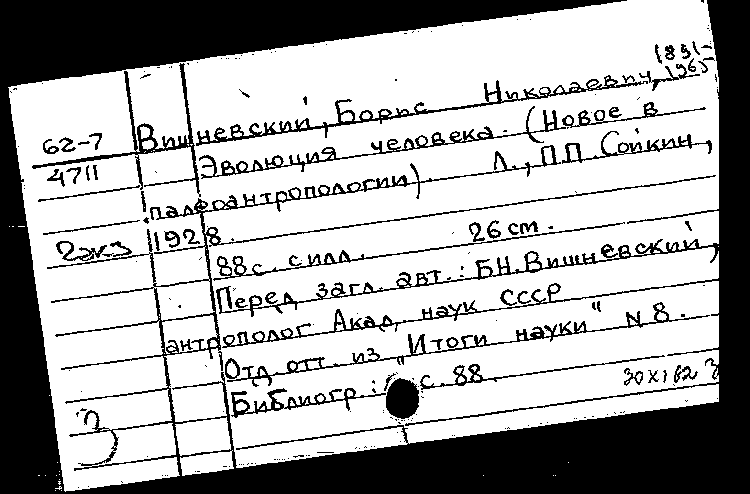 1891-
1965
62-7 Вишневский, Борис Николаевич,
4711 Эволюция человека. (Новое в
палеоантропологии). Л., П.П. Сойкин,
2экз 1928.
88с. с илл. 26 cm.
Перед загл. авт.: Б.Н. Вишневский,
антрополог Акад. наук СССР
Отд. отт. из "Итоги науки" N 8.
Библиогр.: с. 88.
3